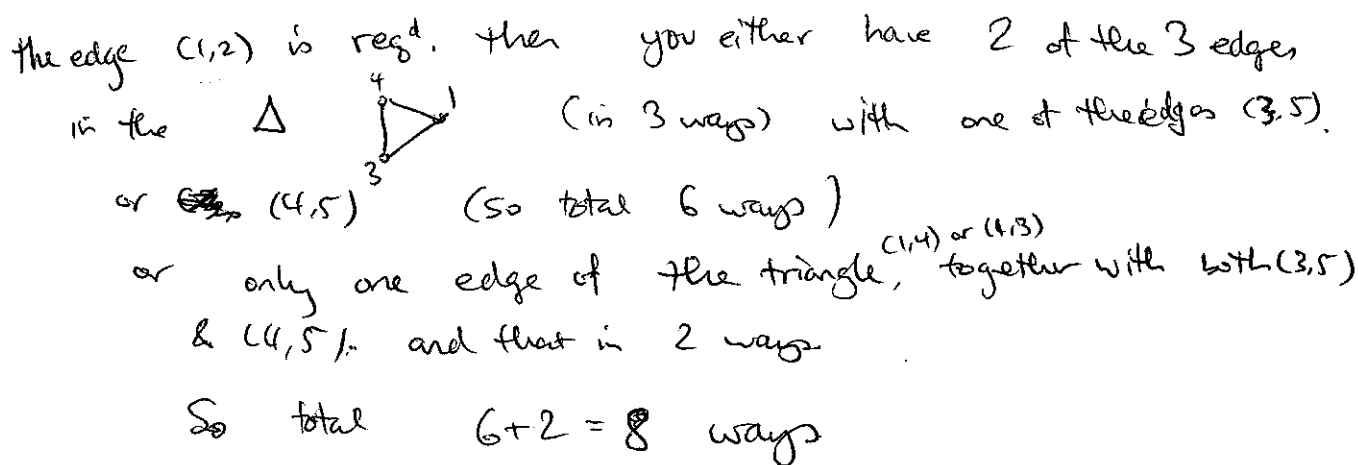 the edge (1,2) is reqd. then you either have 2 of the 3 edges
in the Δ 4 1 3 (in 3 ways) with one of the edges (3,5).
or (4,5) (so total 6 ways)
or only one edge of the triangle, (1,4) or (1,3) together with both (3,5)
& (4,5). and that in 2 ways
So total 6+2 = 8 ways